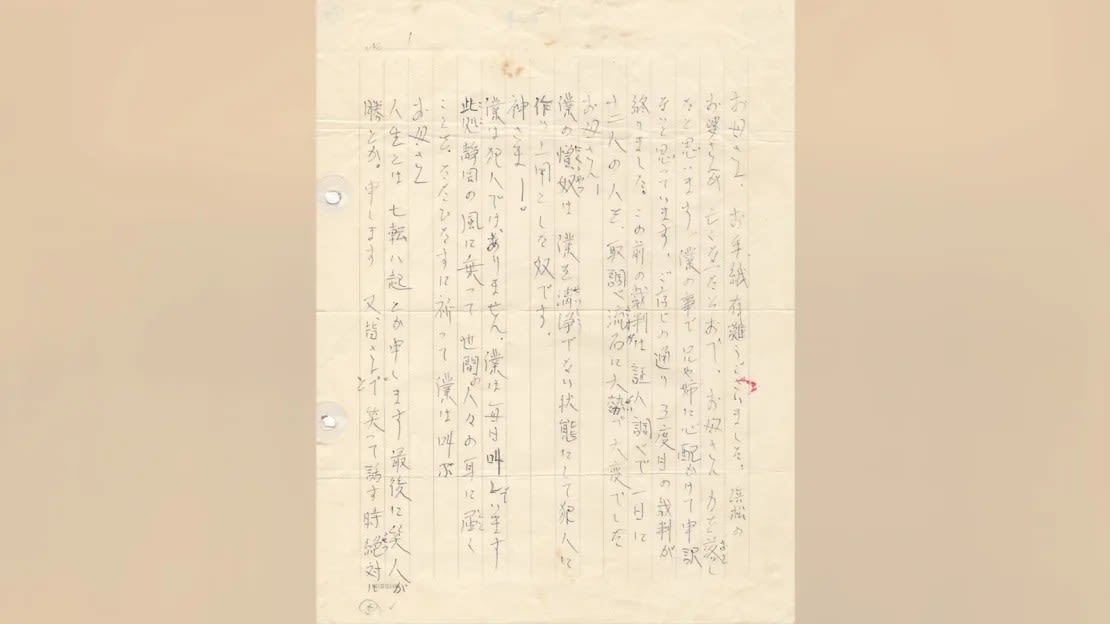 お母さん、お手紙有難うございました。浜松の
お婆さんが亡くなったそおで、お母さん力を落し
たと思います。僕の事で兄や姉に心配かけて申訳
ないと思っています。ご存じの通り3度目の裁判が
終りました。この前の裁判は証人調べで一日に
十二人の人を、取調べ流石に大勢で大変でした
お母さん!
僕の憎い奴は僕を清浄でない状態にして犯人に
作り上用とした奴です。
神さま―!。
僕は犯人では、ありません、僕は毎日叫んでいます
此処静岡の風に乗って世間の人々の耳に届く
ことを、ただひたすらに祈って僕は叫ぶ
お母さん
人生とは七転八起とか申します最後に笑う人が
勝とか。申します又、皆さんで笑って話す時絶対に